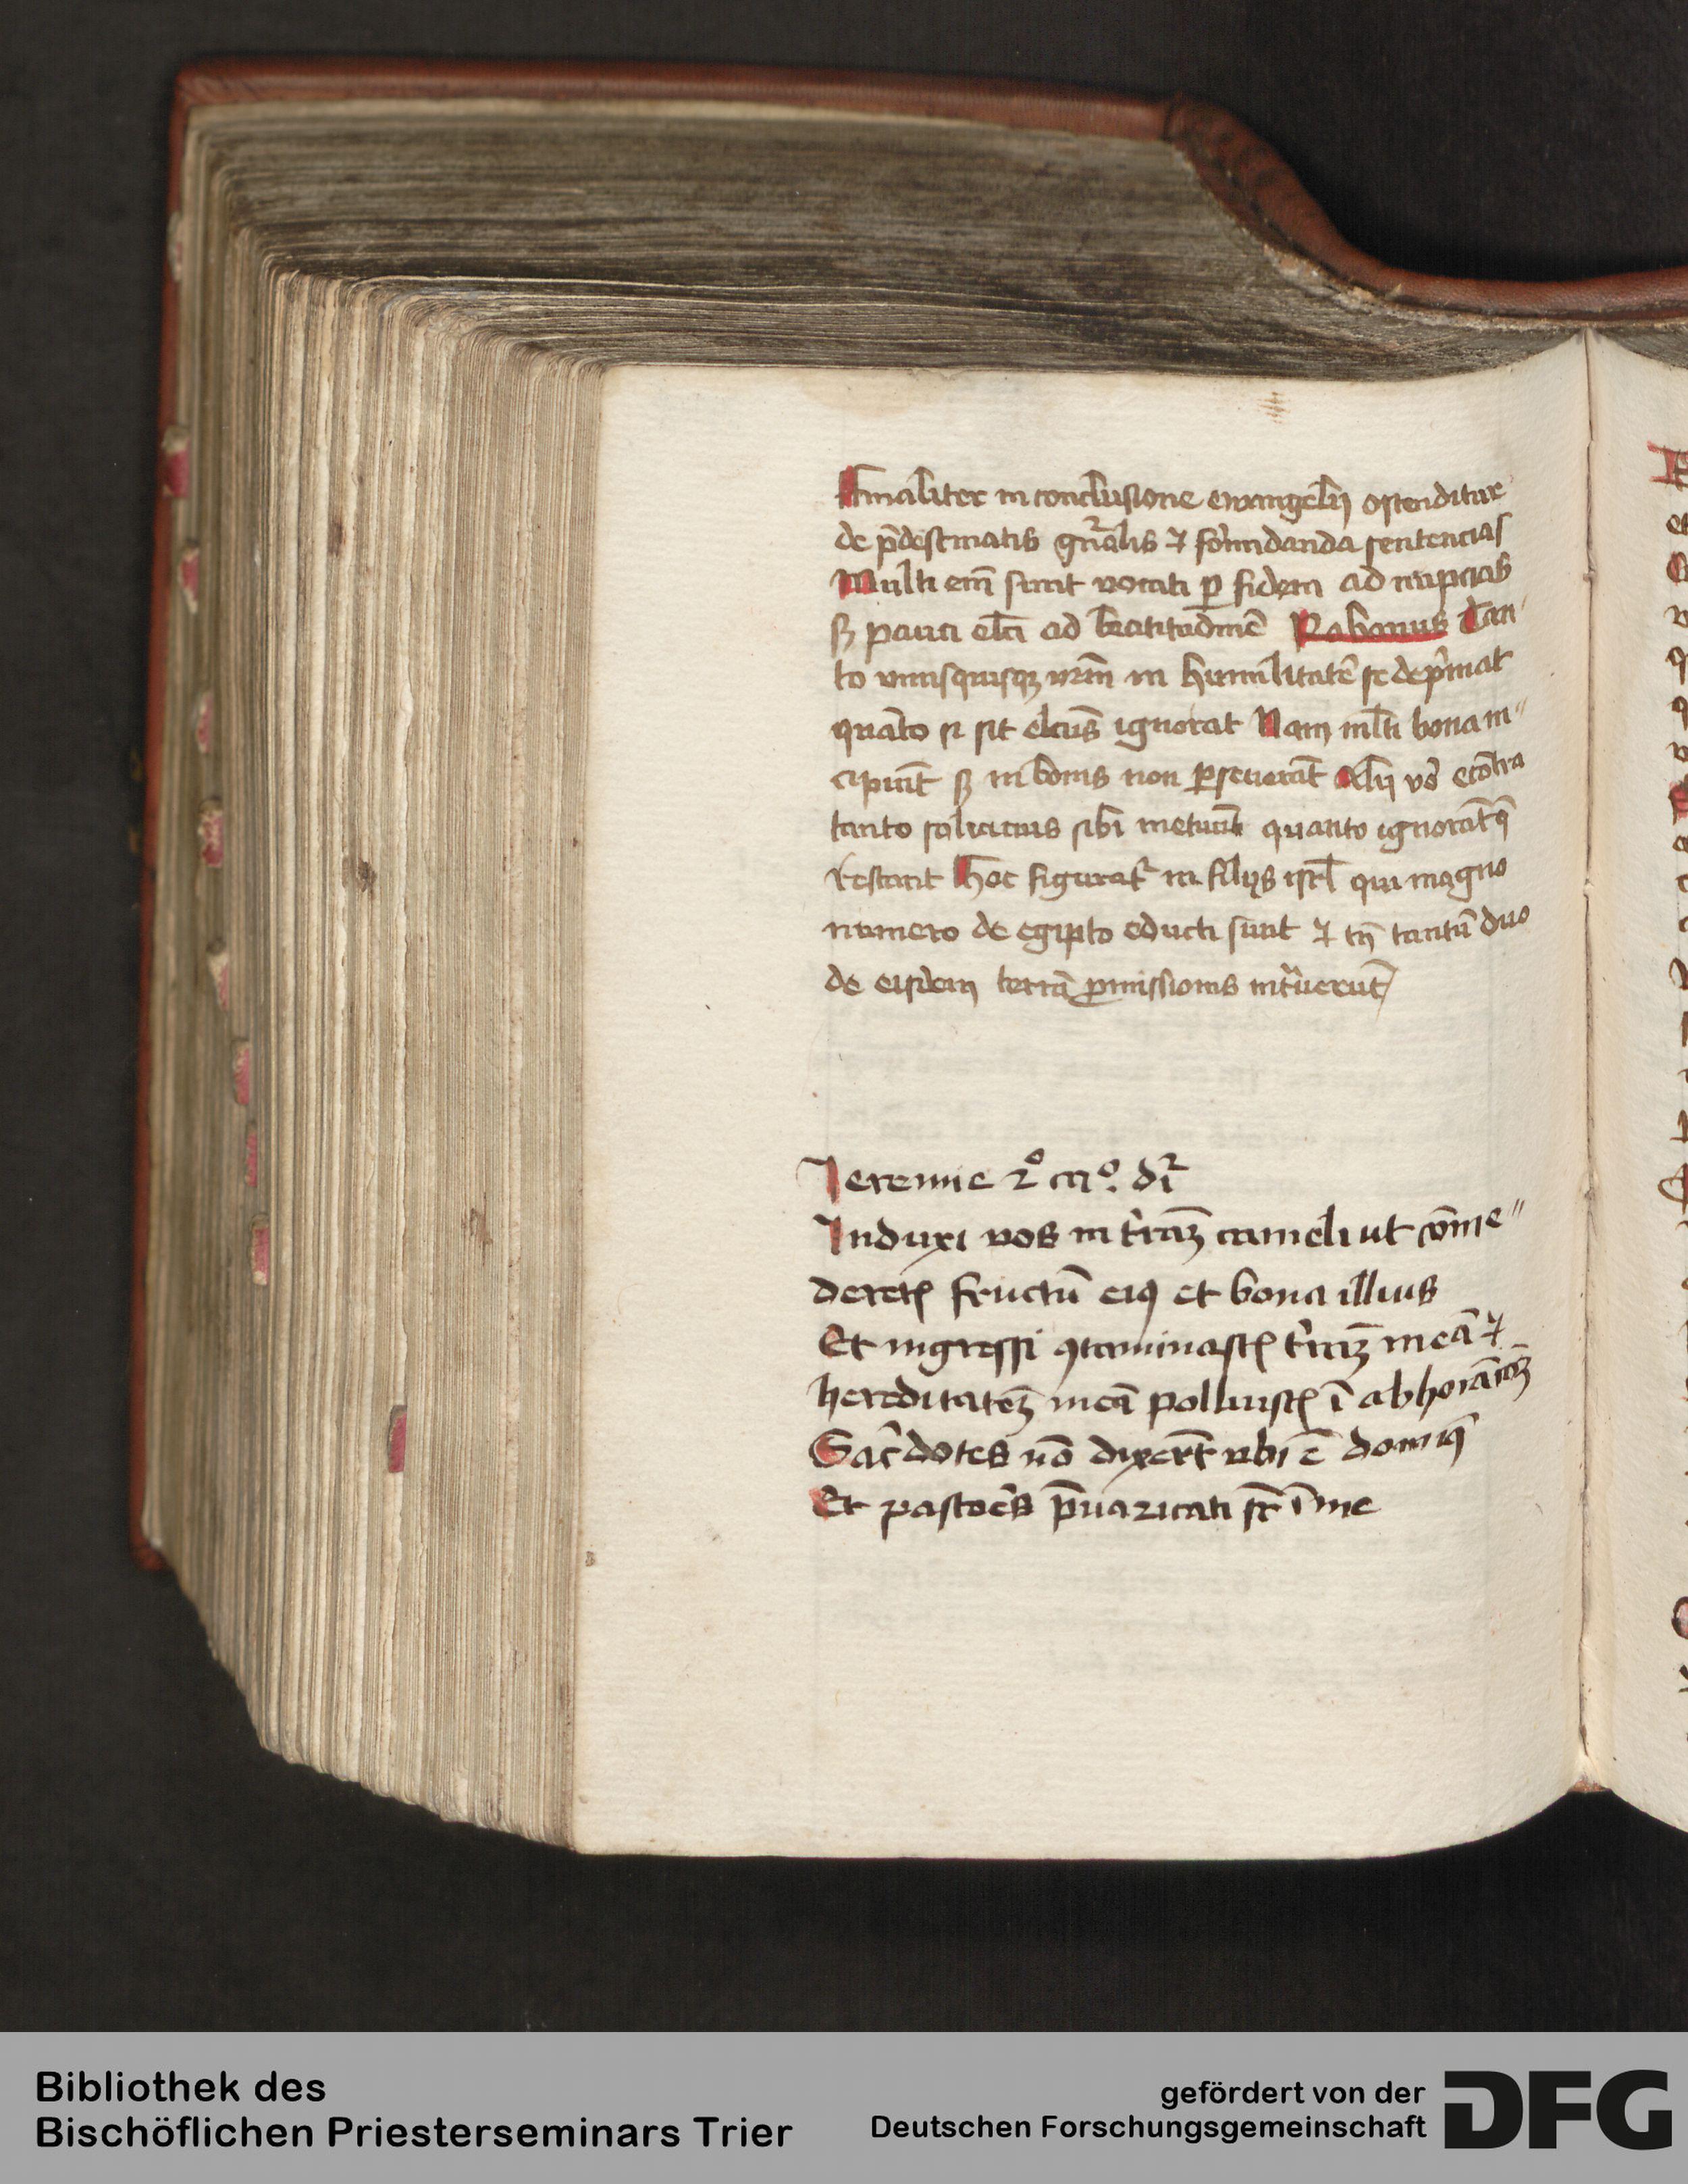 Finaliter in conclusione ewangelij ostenditur
de p̄destinatis gn̄alis ⁊ formidanda sentencias
Multi em̄ sunt vocati ꝑ fidem ad nupcias
sꝫ pauci elc̄i ad beatitudinē Rabanus Tan
to vnusquisqꝫ vr̄m in humilitatē se dep̄mat
quāto si sit elcūs ignorat Nam ml̄ti bona in〃
cipiūt sꝫ in bonis non ꝑseuerāt Alij vo̓ ecōtra
tanto solicicius sibi metuāt quanto ignorāt q̄
restant Hoc figurat᷑ in filijs isrl̄ qui magno
numero de egipto educti sunt ⁊ tn̄ tantū duo
de eisdem terrā ꝓmissionis intᷓuerūt
Jeremie 2° ca°. dr̄
Induxi vos in t̓raꝫ carmeli ut com̄e〃
deretꝭ fructū eiꝯ et bona illius
Et ingressi ꝯtaminastꝭ t̓raꝫ meā ⁊
hereditatēꝫ meā polluistꝭ ī abhoīa
Sac̓dotes nō dixer̄t vbi ē domiꝯ
Et pastor̓s p̄uaricati sr̄ ī me
Bibliothek des
Bischöflichen Priesterseminars Trier
gefördert von der
Deutschen Forschungsgemeinschaft
DFG